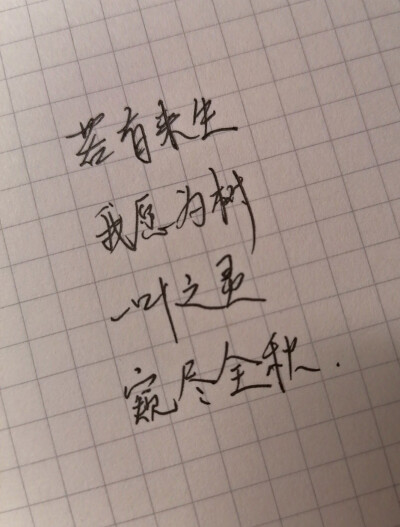 若有来生
我愿为树
一叶之灵
窥尽全秋.